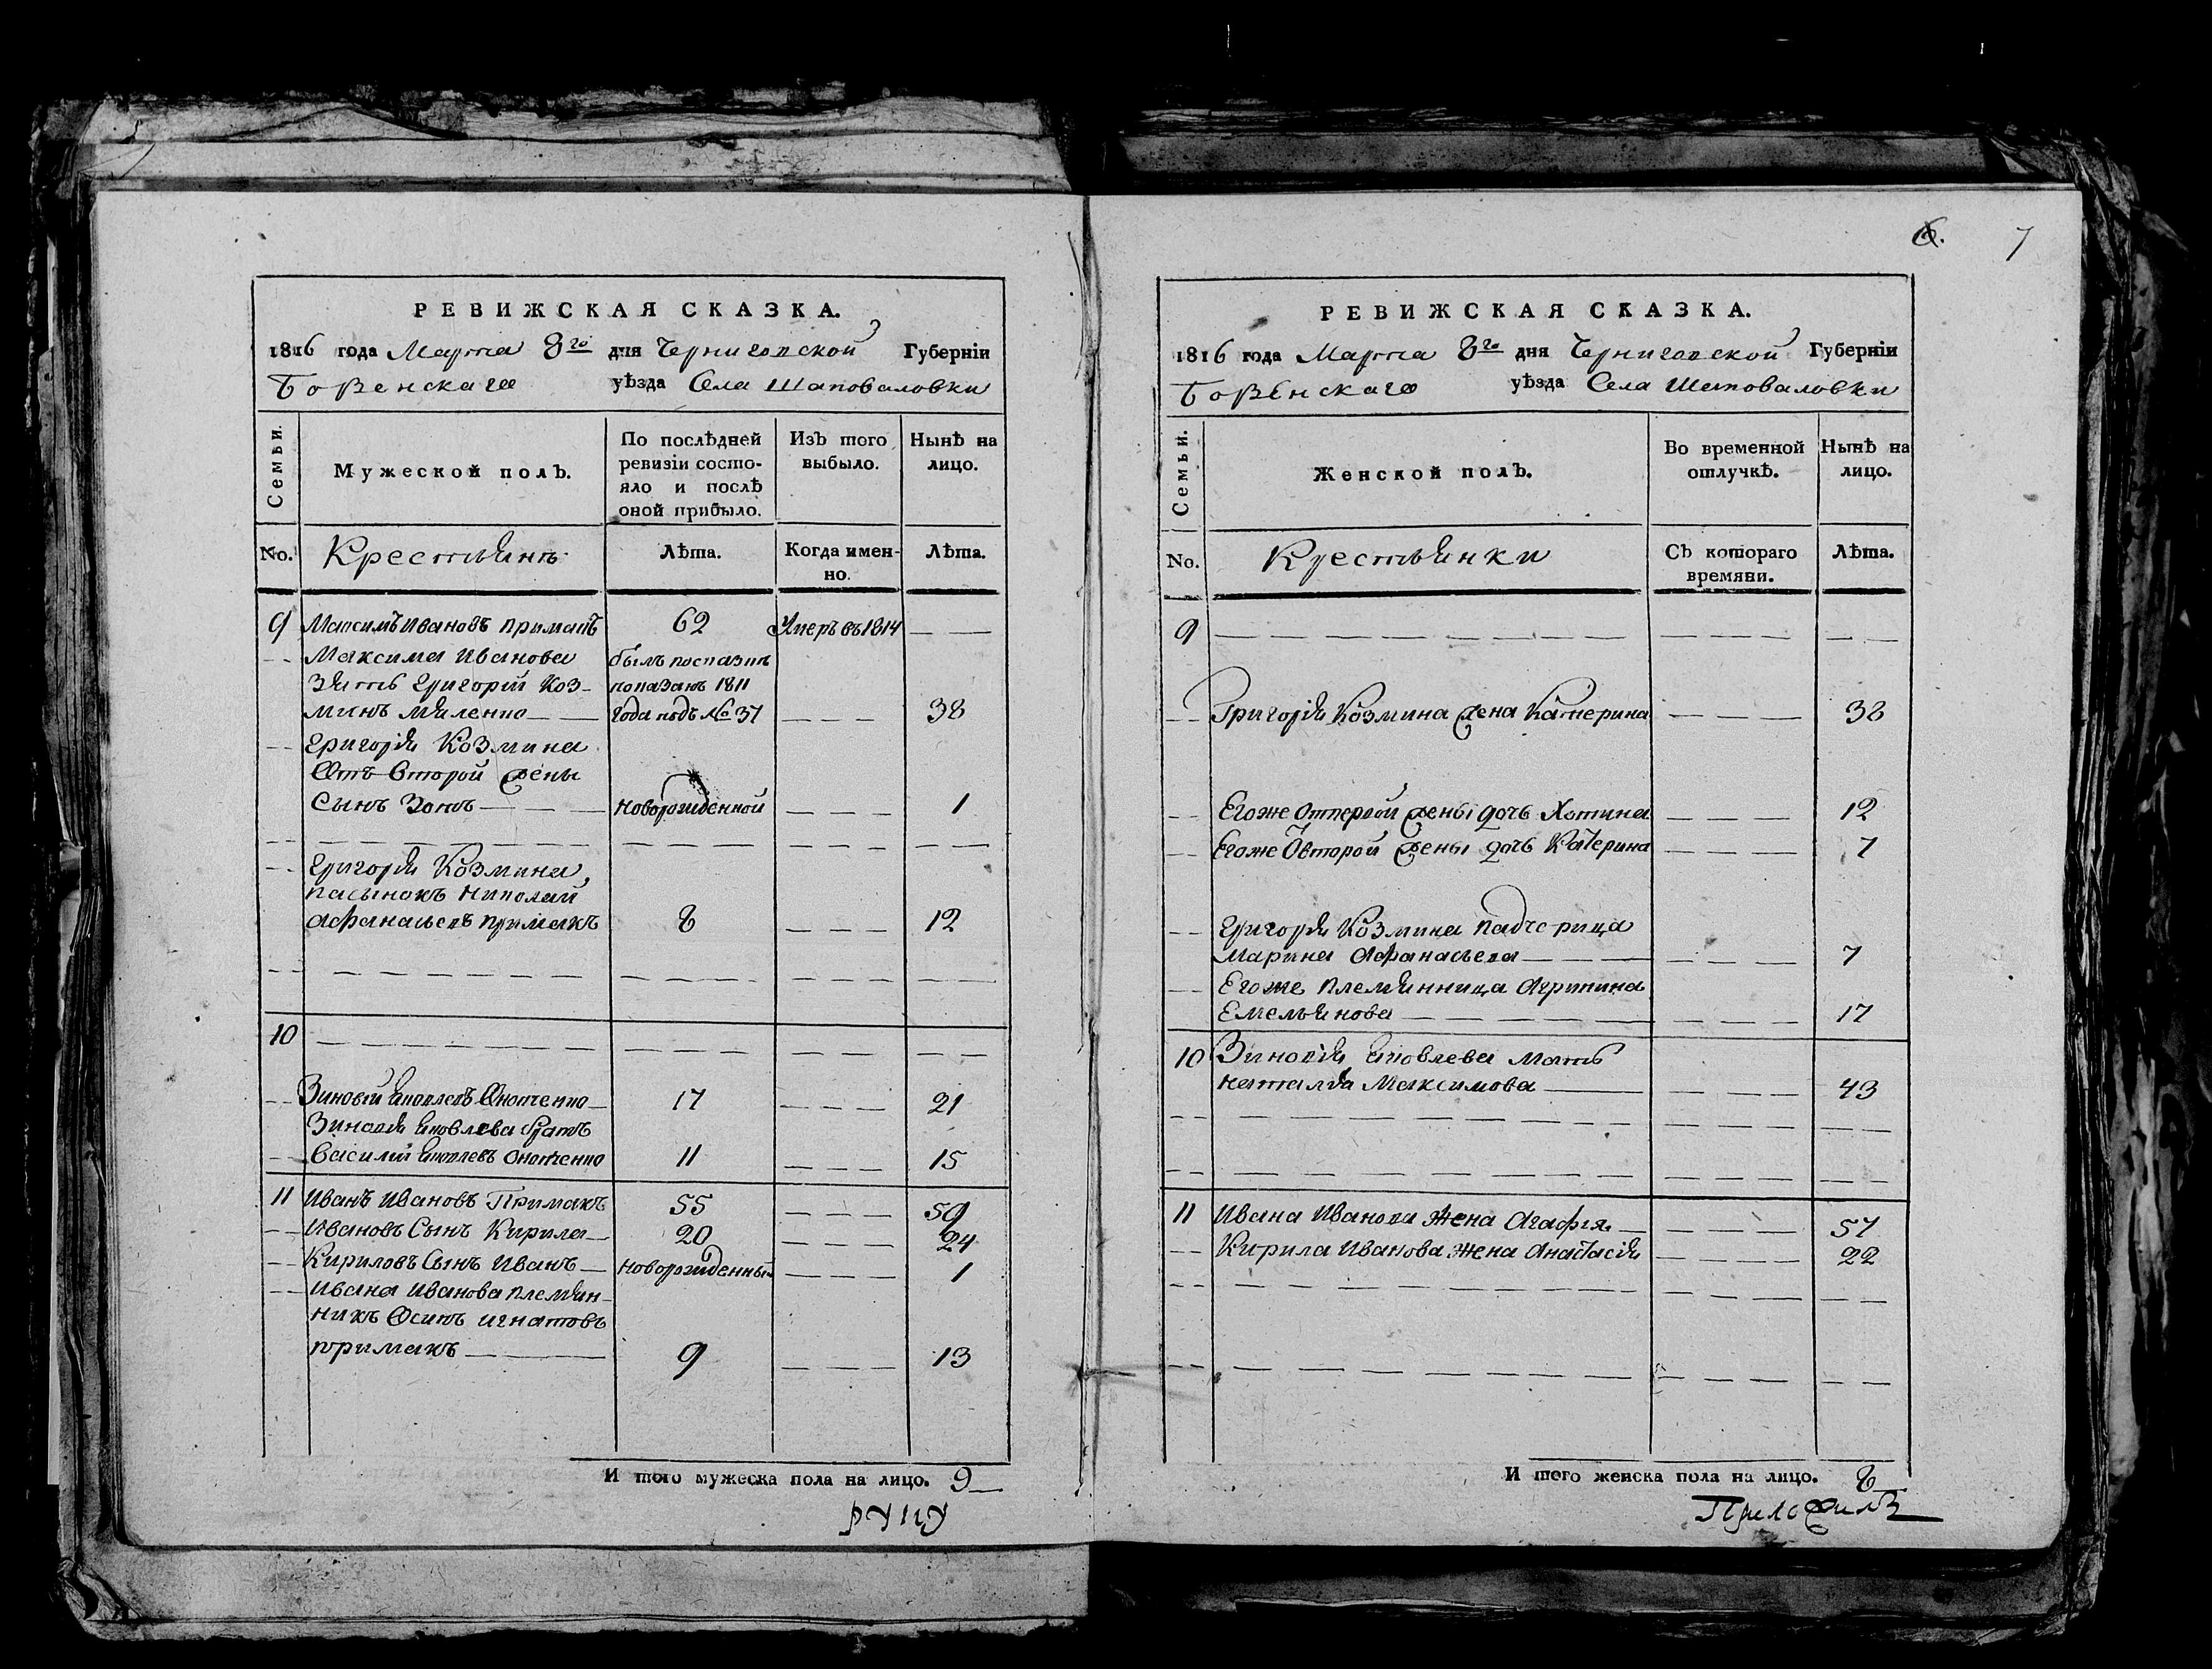 РЕВИЖСКАЯ СКАЗКА.
1816 года Марта 8го дня Черниговской Губерніи
Борзенскаго уѣзда Села Шаповаловки
Семьи.
Мужеской полъ.
По послѣдней ревизіи состояло и послѣ оной прибыло.
Изъ того выбыло.
Нынѣ на лицо.
No.
Крестьянъ
Лѣта.
Когда именно.
Лѣта.
9 Максимъ Ивановъ примакъ 62 Умеръ въ 1814 — —
Максима Иванова былъ
Зять Григорій Коз- показанъ 1811
минъ Мяленко — года подъ № 37 — — — 38
Григорія Козмина
Отъ второй жены
Сынъ Зотъ — — новорожденной — — — 1
Григорія Козмина
пасынокъ Николай
Афанасьевъ примакъ 8 — — — 12
10
Зиновій Яковлевъ 17 — — — 21
Зиновія Яковлева братъ
Василій Яковлевъ 11 — — — 15
11 Иванъ Ивановъ Примакъ 55 — — — 59
Ивановъ Сынъ Кирила — 20 — — — 24
Кириловъ Сынъ Иванъ — новорожденный — — — 1
Ивана Иванова племян-
никъ Осипъ игнатовъ
примакъ — 9 — — — 13
И того мужеска пола на лицо. 9
6.
7
РЕВИЖСКАЯ СКАЗКА.
1816 года Марта 8го дня Черниговской Губерніи
Борзенскаго уѣзда Села Шаповаловки
Семьи.
Женской полъ.
Во временной отлучкѣ.
Нынѣ на лицо.
No.
Крестьянки
Съ котораго времяни.
Лѣта.
9
Григорія Козмина жена Катерина — — — 38
Егоже отпервой жены дочь Хотина — — — 12
Егоже Ѿвторой жены дочь Катерина — — — 7
Григорія Козмина падчерица
Марина Афанасьева — — — 7
Егоже племянница Агрипина
Емельянова — — — 17
10 Зиновія Яковлева мать
Наталія Максимова — — — 43
11 Ивана Иванова жена Агафія — — — — 57
Кирила Иванова жена Анастасія — — — — 22
И того женска пола на лицо. 8